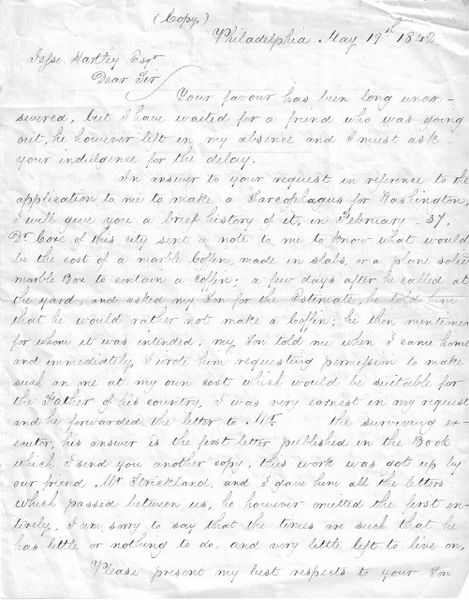 (Copy)
Philadelphia May 19th 1842
Jesse Hartley Esqr
Dear Sir
Your favour has been long unan-
swered, but I have waited for a friend who was going
out, he however left in my absence and I must ask
your indulgence for the delay.
In answer to your request in reference to the
application to me to make a Sarcophagus for Washington,
I will give you a brief history of it, in February - 37.
Dr Coxe of this city sent a note to me to know what would
be the cost of a marble Coffin, made in slabs, or a plane solid
marble Box to contain a coffin; a few days after he called at
the yard, and asked my Son for the Estimate, he told him
that he would rather not make a Coffin; he then mentioned
for whom it was intended, my Son told me when I came home
and immediately I wrote him requesting permission to make
such an one at my own cost which would be suitable for
the Father of his country, I was very earnest in my request
and he forwarded the letter to Mr. the surviving ex-
ecutor, his answer is the first letter published in the Book
which I send you another copy, this work was got up by
our friend Mr Strickland, and I gave him all the letters
which passed between us, he however omitted the first en-
tirely, I am sorry to say that the times are such that he
has little or nothing to do, and very little left to live on,
Please present my best respects to your Son